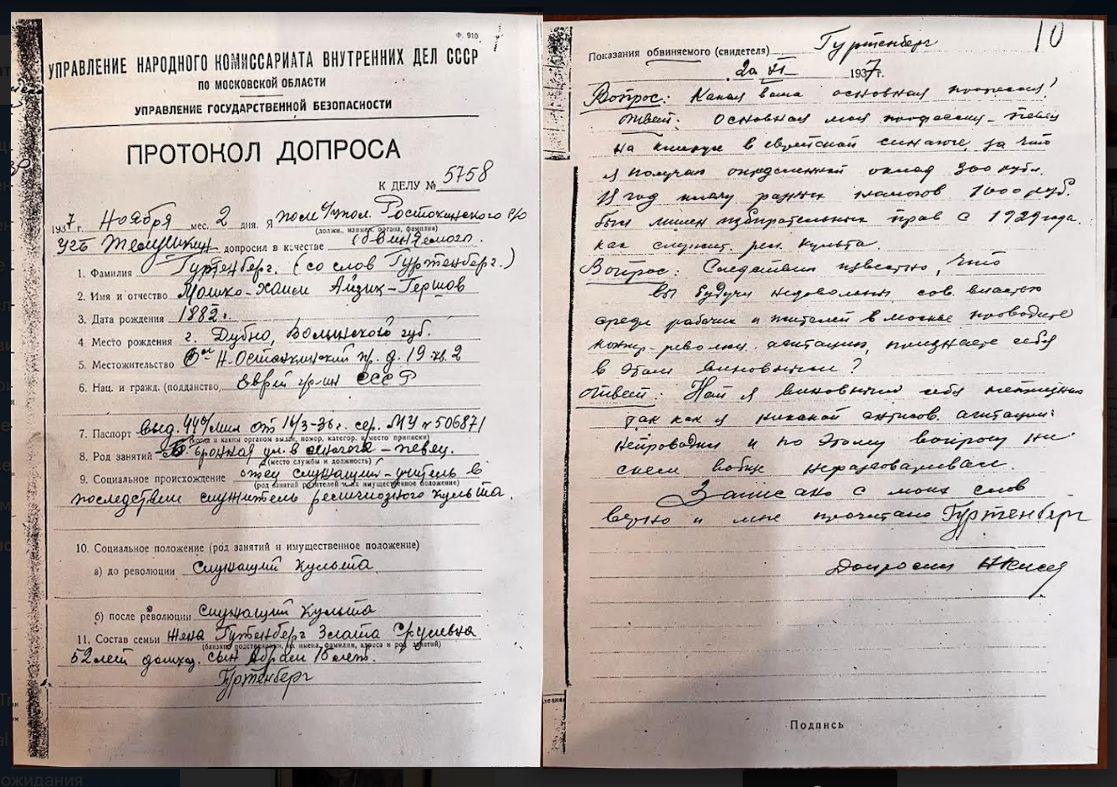 Ф. 910
УПРАВЛЕНИЕ НАРОДНОГО КОМИССАРИАТА ВНУТРЕННИХ ДЕЛ СССР
ПО МОСКОВСКОЙ ОБЛАСТИ
УПРАВЛЕНИЕ ГОСУДАРСТВЕННОЙ БЕЗОПАСНОСТИ
ПРОТОКОЛ ДОПРОСА
К ДЕЛУ № 5758
1937 г. Ноября мес. 2 дня. Я Ростокинского р/о
(должн., наимен. органа, фамилия)
УГБ допросил в качестве обвиняемого.
1. Фамилия Гуртенберг. (со слов Гуртенберг.)
2. Имя и отчество Мошко-Хаим Айзик-Гершов
3. Дата рождения 1882 г.
4. Место рождения г. Дубно, Волынского губ.
5. Местожительство Н-Останкинский пр. д. 19 кв. 2
6. Нац. и гражд. (подданство) Еврей гр-ин СССР
7. Паспорт выд. 44 о/мил от 16/3-36 г. сер. МУ № 506871
(когда и каким органом выдан, номер, категор. и место прописки)
8. Род занятий Б. Бронная ул. в синагоге - певец.
(место службы и должность)
9. Социальное происхождение отец служащий - учитель в
(род занятий родителей и их имущественное положение)
последствии служитель религиозного культа.
10. Социальное положение (род занятий и имущественное положение)
а) до революции Служащий культа
б) после революции Служащий культа
11. Состав семьи Жена Гутенберг Злата Сруливна
(близкие родственники, их имена, фамилии, адреса и род занятий)
52 лет домхоз. сын Абрам 15 лет.
Гуртенберг
10
Показания обвиняемого (свидетеля) Гуртенберг
2го XI 1937 г.
Вопрос: Какая ваша основная профессия?
Ответ: Основная моя профессия - певец
на в еврейской синагоге, за что
я получаю определенный оклад 300 рубл.
В год плачу разных налогов 1000 руб.
был лишен избирательных прав с 1929 года.
как служит. рел. культа.
Вопрос: Следствию известно, что
вы будучи недовольны сов. властью
среди рабочих и жителей в москве проводите
контр-револю. агитацию, признаете себя
в этом виновным?
Ответ: Нет я виновным себя не признаю
так как я никакой антисов. агитации
непроводил и по этому вопросу ни
с кем вобще неразговаривал.
Записано с моих слов
верно и мне прочитано Гуртенберг
Допросил
Подпись